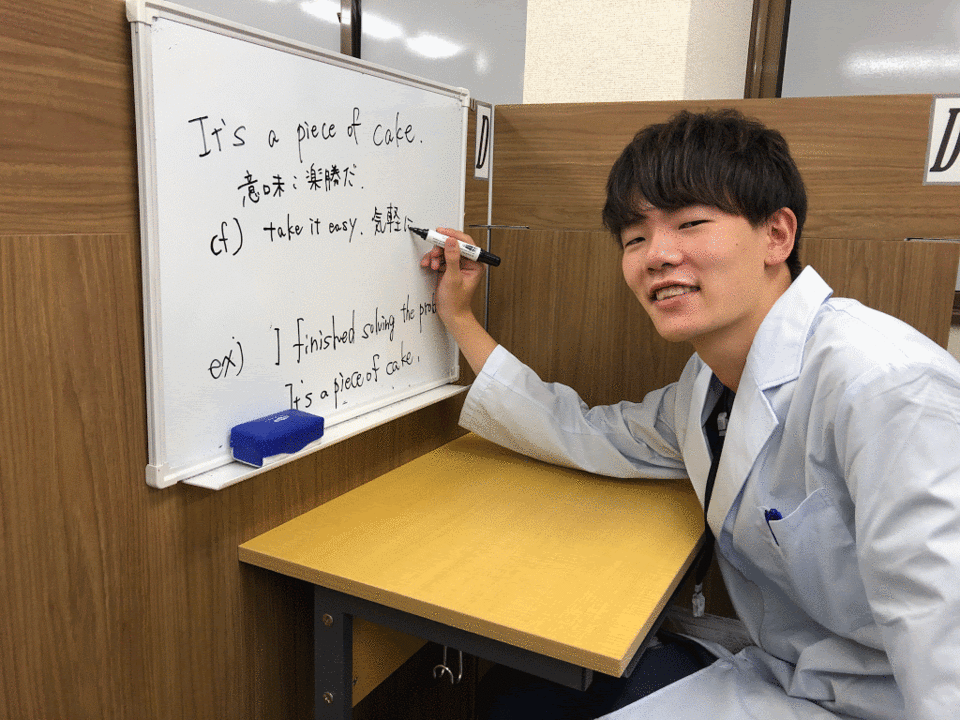 It's a piece of cake.
意味：楽勝だ.
cf) take it easy. 気軽に
ex) I finished solving the prob
It's a piece of cake.
D
D